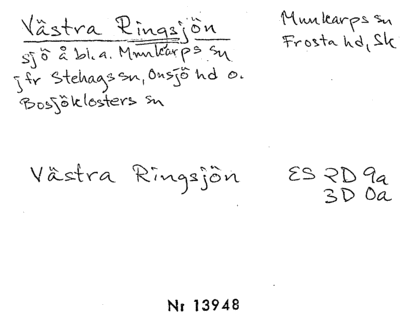 Västra Ringsjön
Munkarps sn
sjö å bl.a. Munkarps sn
Frosta hd, Sk
jfr Stehags sn, Onsjö hd o.
Bosjöklosters sn
Västra Ringsjön
ES 2D 9a
3D 0a
Nr 13948